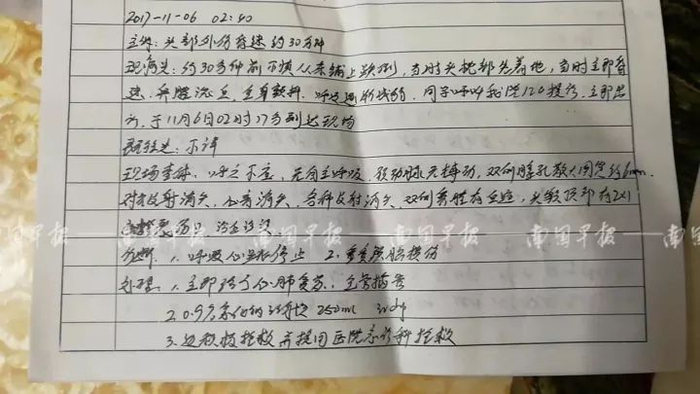 2017-11-06 02:40
主诉:头部外伤昏迷约30分钟
现病史:约30分钟前不慎从床铺上跌倒,当时头枕部先着地,当时立即昏
迷,鼻腔流血,全身颤抖,呼吸逐渐减弱,同学呼叫我院120接诊,立即出
诊,于11月6日02时17分到达现场
既往史:不详
现场查体:呼之不应,无自主呼吸,颈动脉无搏动,双侧瞳孔散大固定约6mm,
对光反射消失,心音消失,各种反射消失,双侧鼻腔有血迹,头颅顶部有2×1
南国早报 南国早报 南国早报
诊断:1.呼吸心跳停止 2.重度颅脑损伤
处理:1.立即给予心肺复苏,
2.0.9%氯化钠注射液 250ml ivdg
3.边积极抢救并接回医院急诊科抢救